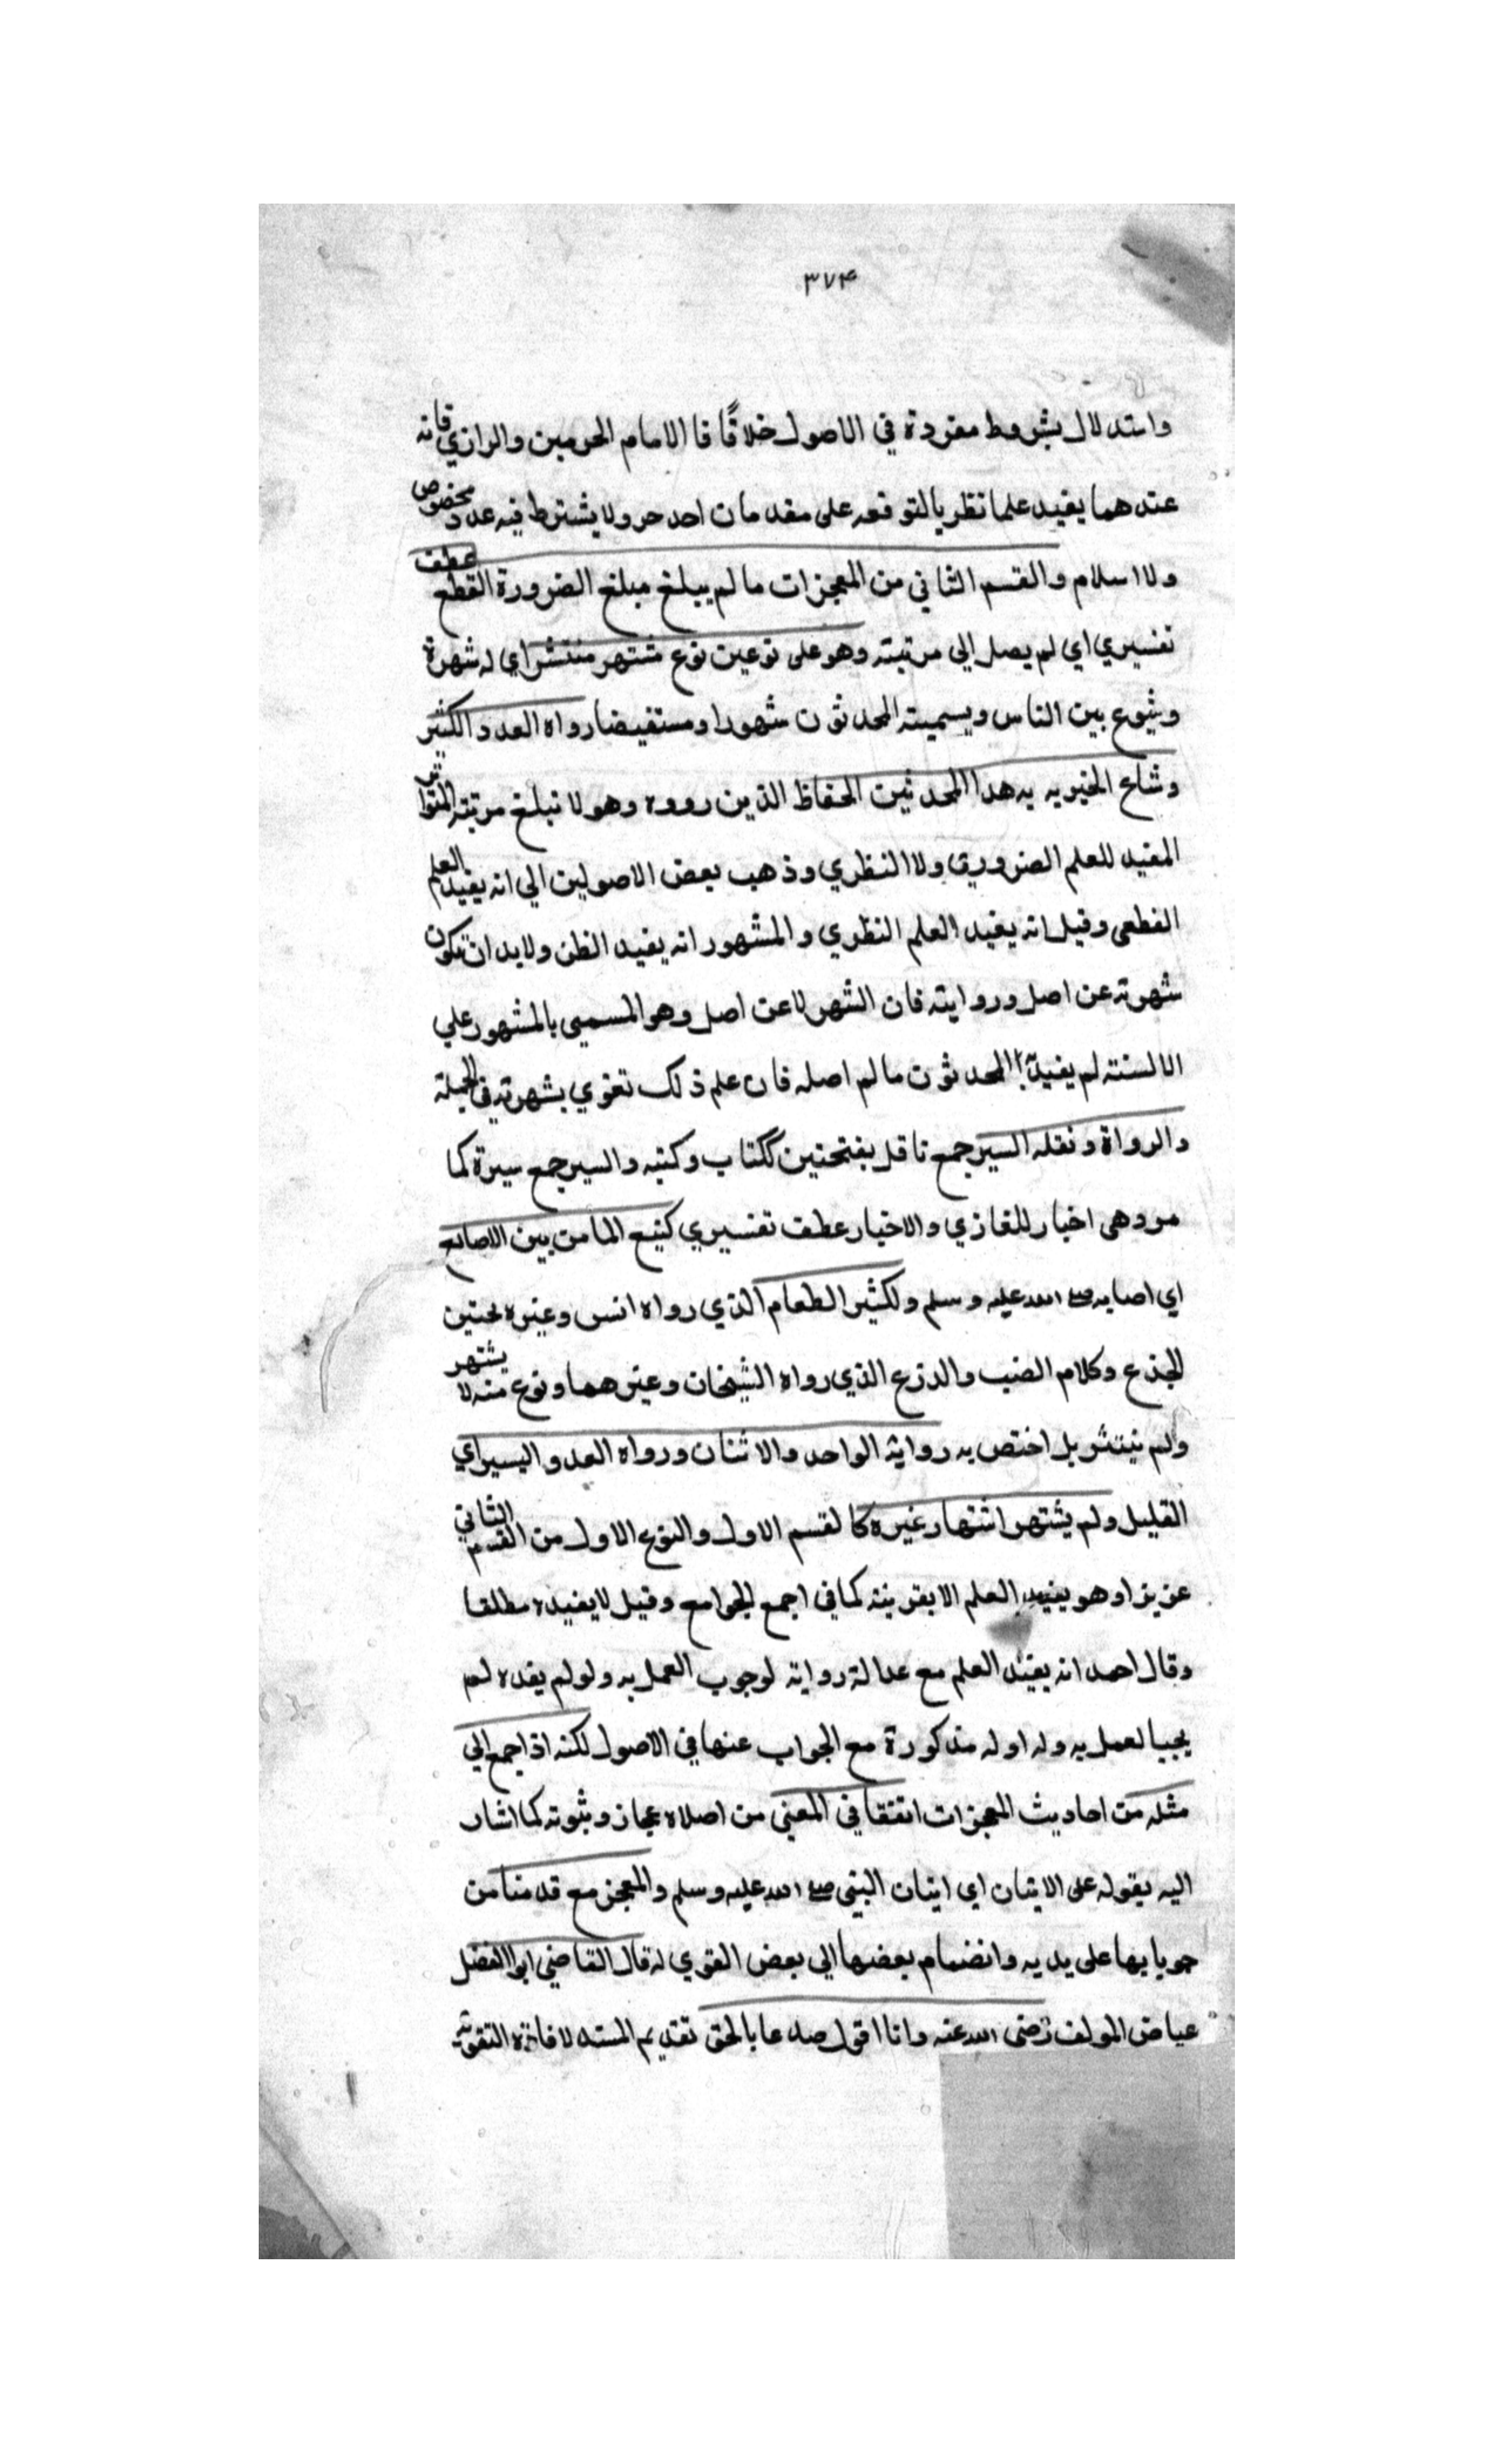 ٣٧۴
واستدلال بشروط مفردة في الاصول خلافًا فا الامام الحرمين والرازي فانه
عندهما يفيد علما نظريا لتوقفه على مقدمات احد حر ولا يشترط فيه عدد مخصوص
ولا اسلام والقسم الثاني من المعجزات ما لم يبلغ مبلغ الضرورة القطع عطف
تفسيري اي لم يصل الي مرتبته وهو على نوعين نوع مشتهر منتشر اي له شهرة
وشيوع بين الناس ويسميته المحدثون شهورا ومستفيضا رواه العدد الكثير
وشاع الخبر به به هدا المحدثين الحفاظ الذين رووه وهو لا تبلغ مرتبته المتواتر
المفيد للعلم الضروري ولا النظري وذهب بعض الاصولين الي انه يفيد العلم
القطعى وقيل انه يفيد العلم النظري والمشهور انه يفيد الظن ولابد ان تكون
شهرته عن اصل وروايته فان الشهر لا عن اصل وهو المسمي بالمشهور علي
الالسنته لم يفيد المحدثون مالم اصله فان علم ذلك تقوي بشهرته في الجملة
والرواة ونقله السير جمع ناقل بفتحتين ككتاب وكتبه والسير جمع سيرة كما
مر وهى اخبار للغازي والاخبار عطف تفسيري كنبع الما من بين الاصابع
اي اصابه صلى الله عليه وسلم ولكثير الطعام الذي رواه انس وغيره لحنين
للجذع وكلام الضب والدرع الذي رواه الشيخان وغيرهما ونوع منه لا يشتهر
ولم ينتشر بل اختص به رواية الواحد والاثنان ورواه العدو اليسير اي
القليل ولم يشتهر اشتهار غيره كا لقسم الاول والنوع الاول من القسم الثاني
عزيزا وهو يفيد العلم الا بقرينته كما في اجمع الجوامع وقيل لا يفيده مطلقا
وقال احمد انه يفيد العلم مع عدالة روايته لوجوب العمل به ولو لم يفده لم
يجب العمل به وله اوله مذكورة مع الجواب عنها في الاصول لكنه اذا جمع الي
مثله من احاديث المعجزات اتفقا في المعني من اصلاه عجاز وثبوته كما اشار
اليه بقوله على الاتيان اي اتيان البني صلى الله عليه وسلم والمعجز مع قدمنا من
جويا بها على يديه وانضمام بعضها الي بعض القوي له قال القاضي ابوا الفضل
عياض المولف رضى الله عنه وانا اقول صدعا بالحق تقديم المسند لافازة التقوية